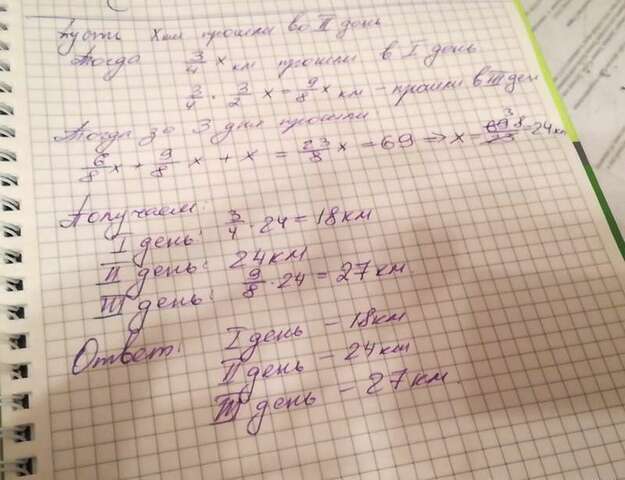 Пусть x км прошли во II день
Тогда 3/4 x км прошли в I день
3/4 · 3/2 x = 9/8 x км - прошли в III день
Тогда за 3 дня прошли
6/8 x + 9/8 x + x = 23/8 x = 69 => x = 69·8/23 = 24 км
Получаем:
I день: 3/4 · 24 = 18 км
II день: 24 км
III день: 9/8 · 24 = 27 км.
Ответ: I день - 18 км
II день - 24 км
III день - 27 км.